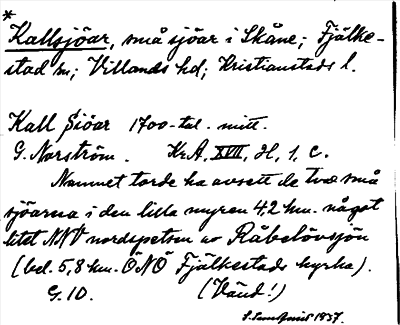 *
Kallsjöar, små sjöar i Skåne; Fjälke-
stad sn; Villands hd; Kristianstads l.
Kall Siöar 1700-tal. mitt.
G. Norström. KrA, XVII, H, 1, c.
Namnet torde ha avsett de två små
sjöarna i den lilla myren 4,2 km. något
litet NNV nordspetsen av Råbelövsjön
(bel. 5,8 km. ÖNÖ Fjälkestads kyrka).
G. 10. (Vänd!)
1937.